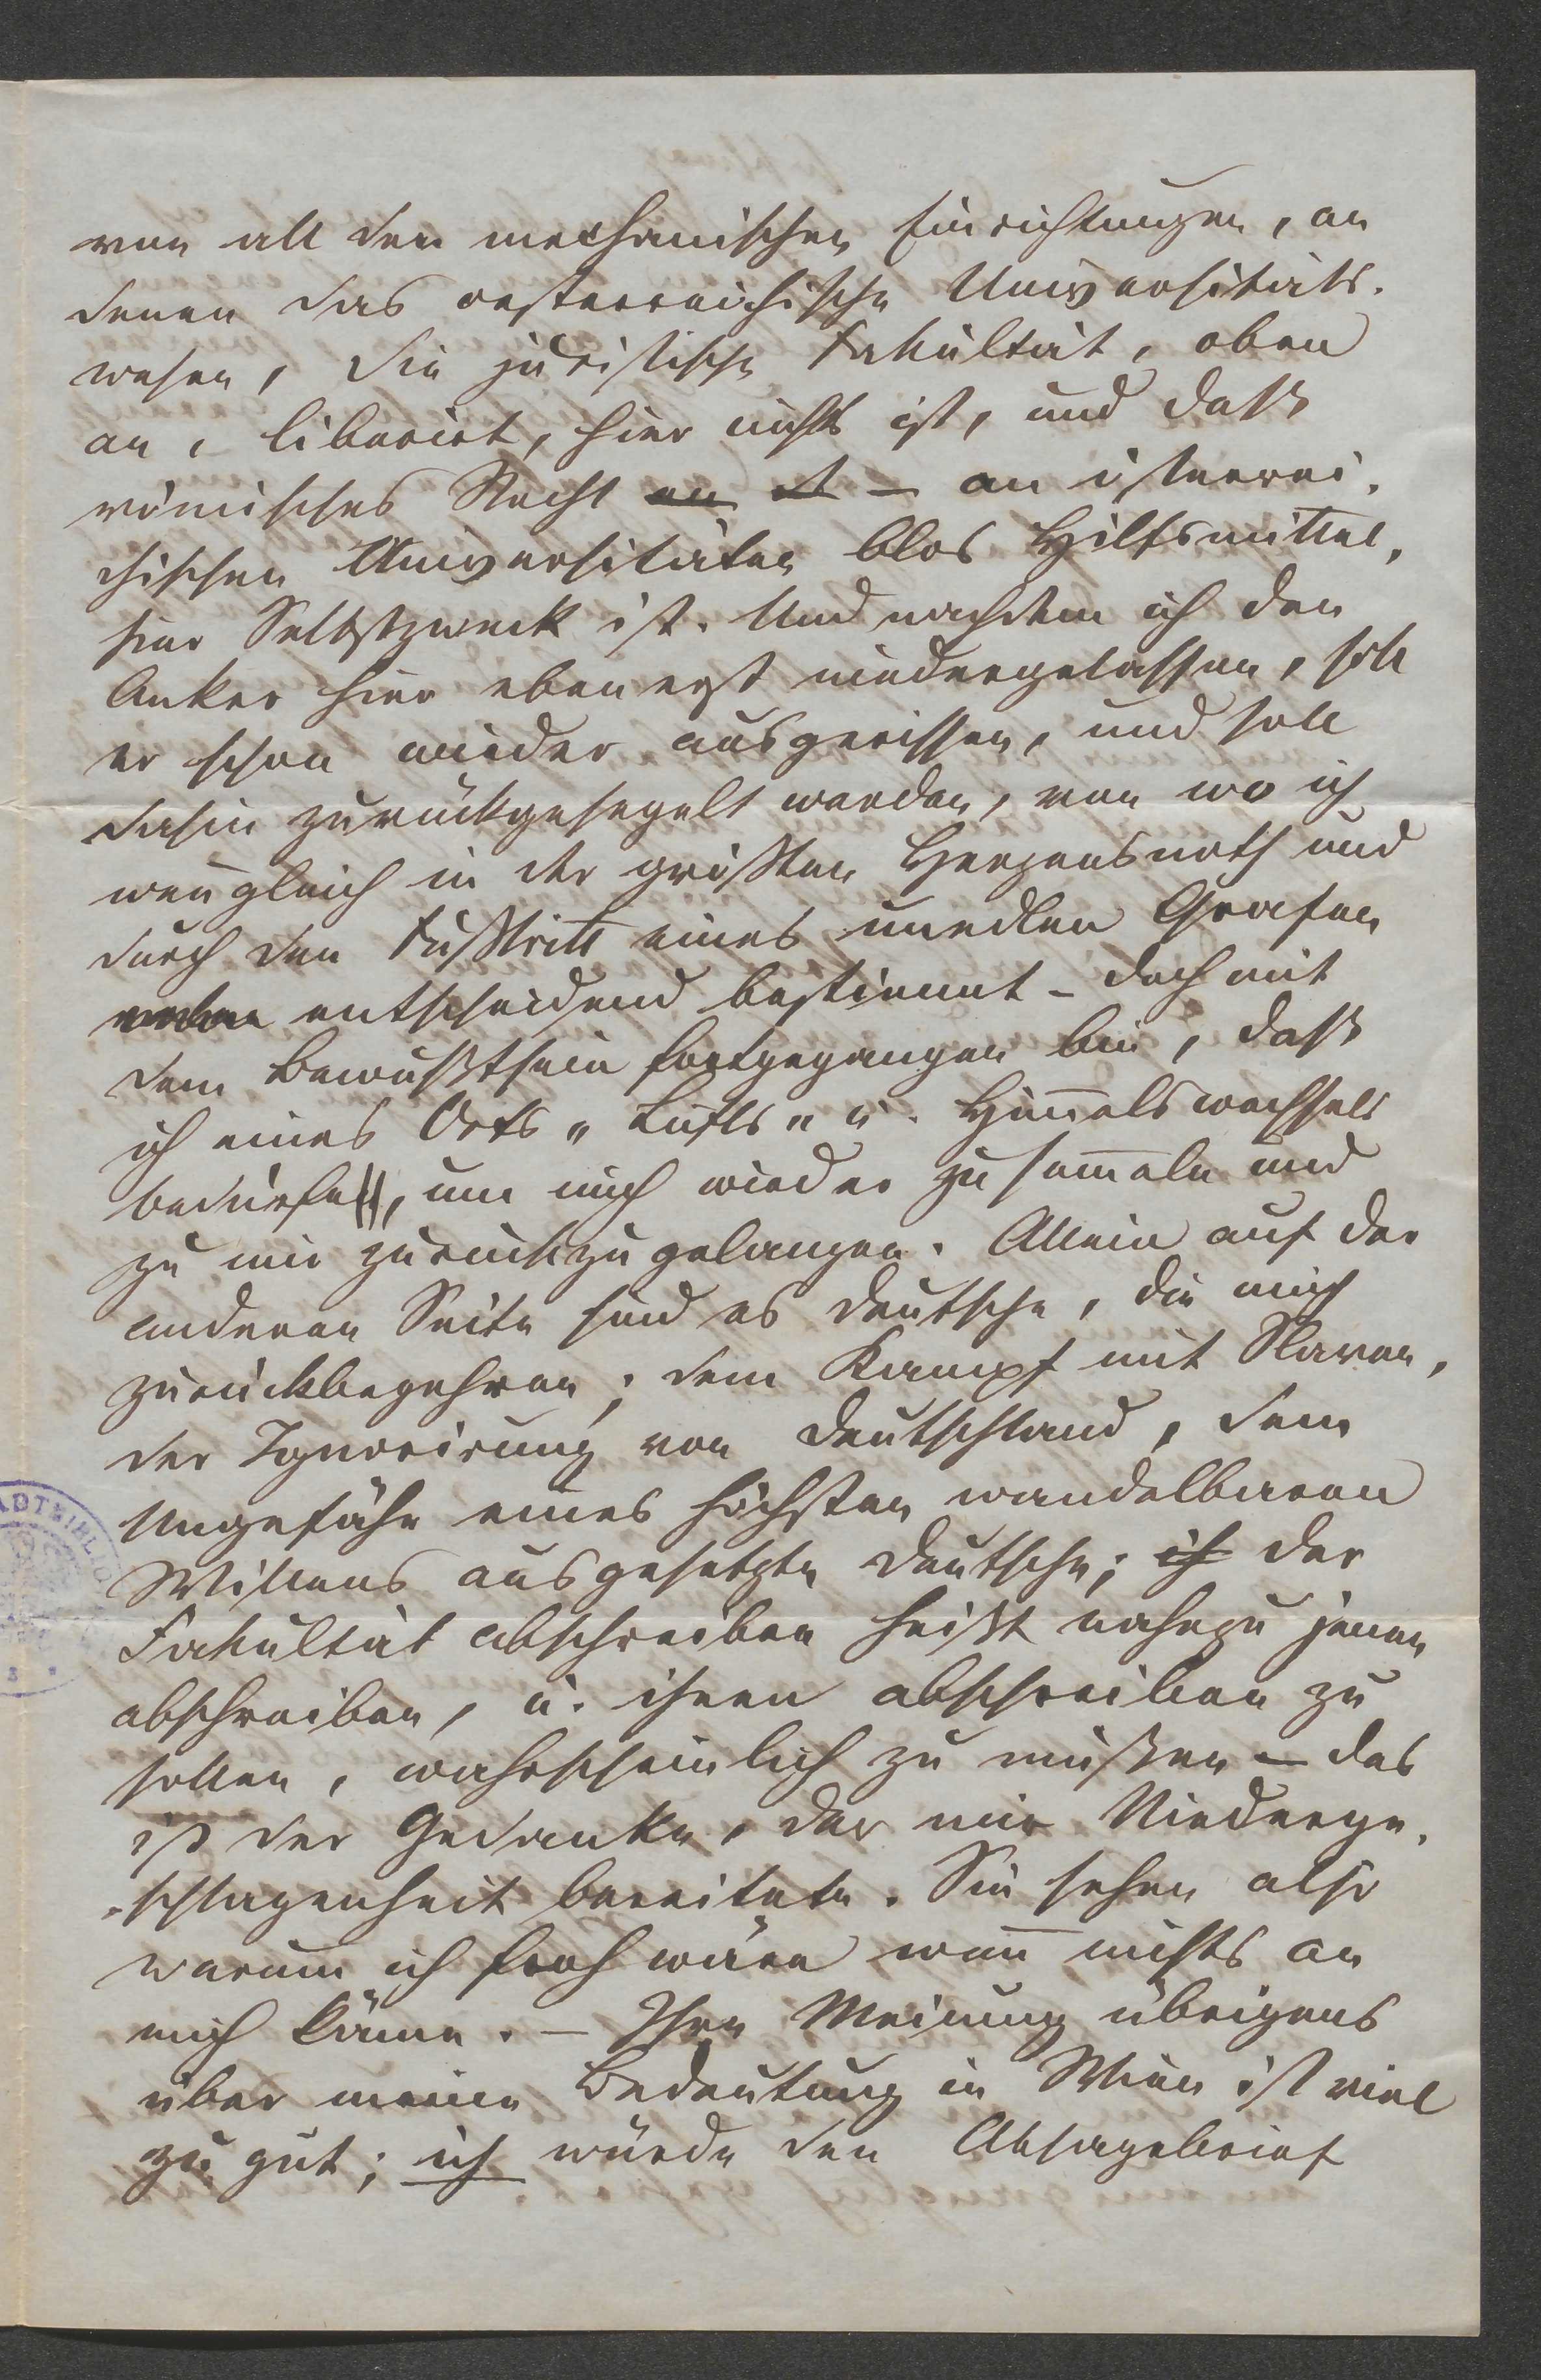 von all den mechanischen Einrichtungen, an
denen das oesterreichische Universitäts-
wesen, die juristische Fakultät, oben
an, liberirt, hier nichts ist, und daß
römisches Recht an – an österrei-
chischen Universitäten blos Hilfsmittel,
hier Selbstzweck ist. Und nachdem ich den
Anker hier eben erst niedergelassen, soll
er schon wieder ausgerissen, und soll
dahin zurückgesegelt werden, von wo ich
wenngleich in der größten Herzensnoth und
durch den Fußtritt eines unedlen Grafen
entscheidend bestimmt – doch mit
dem Bewußtsein fortgegangen bin, daß
ich eines Orts „ Lufts „ u. Himmelswechsels
bedürfe, um mich wieder zu sammeln und
zu mir zurückzugelangen. Allein auf der
anderen Seite sind es Deutsche, die mich
zurückbegehren; dem Kampf mit Slaven,
der Ignorirung von Deutschland, dem
Ungefähr eines höchsten wandelbaren
Willens ausgesetzte Deutsche; ich der
Fakultät abschreiben heißt nahezu jenen
abschreiben, u. ihnen abschreiben zu
sollen, wahrscheinlich zu müßen – das
ist der Gedanke, der mir Niederge-
-schlagenheit bereitete. Sie sehen also
warum ich froh wäre wenn nichts an
mich käme. – Ihre Meinung übrigens
über meine Bedeutung in Wien ist viel
zu gut; ich würde den Absagebrief